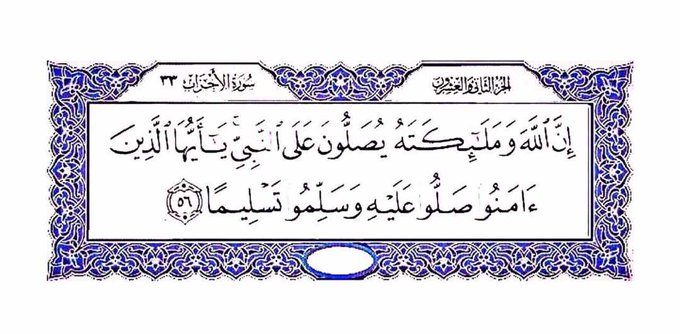 الجزء الثاني والعشرون
سورة الأحزاب ٣٣
إِنَّ ٱللَّهَ وَمَلَـٰٓئِكَتَهُۥ يُصَلُّونَ عَلَى ٱلنَّبِيِّۚ يَـٰٓأَيُّهَا ٱلَّذِينَ
ءَامَنُوا۟ صَلُّوا۟ عَلَيْهِ وَسَلِّمُوا۟ تَسْلِيمًا ٥٦